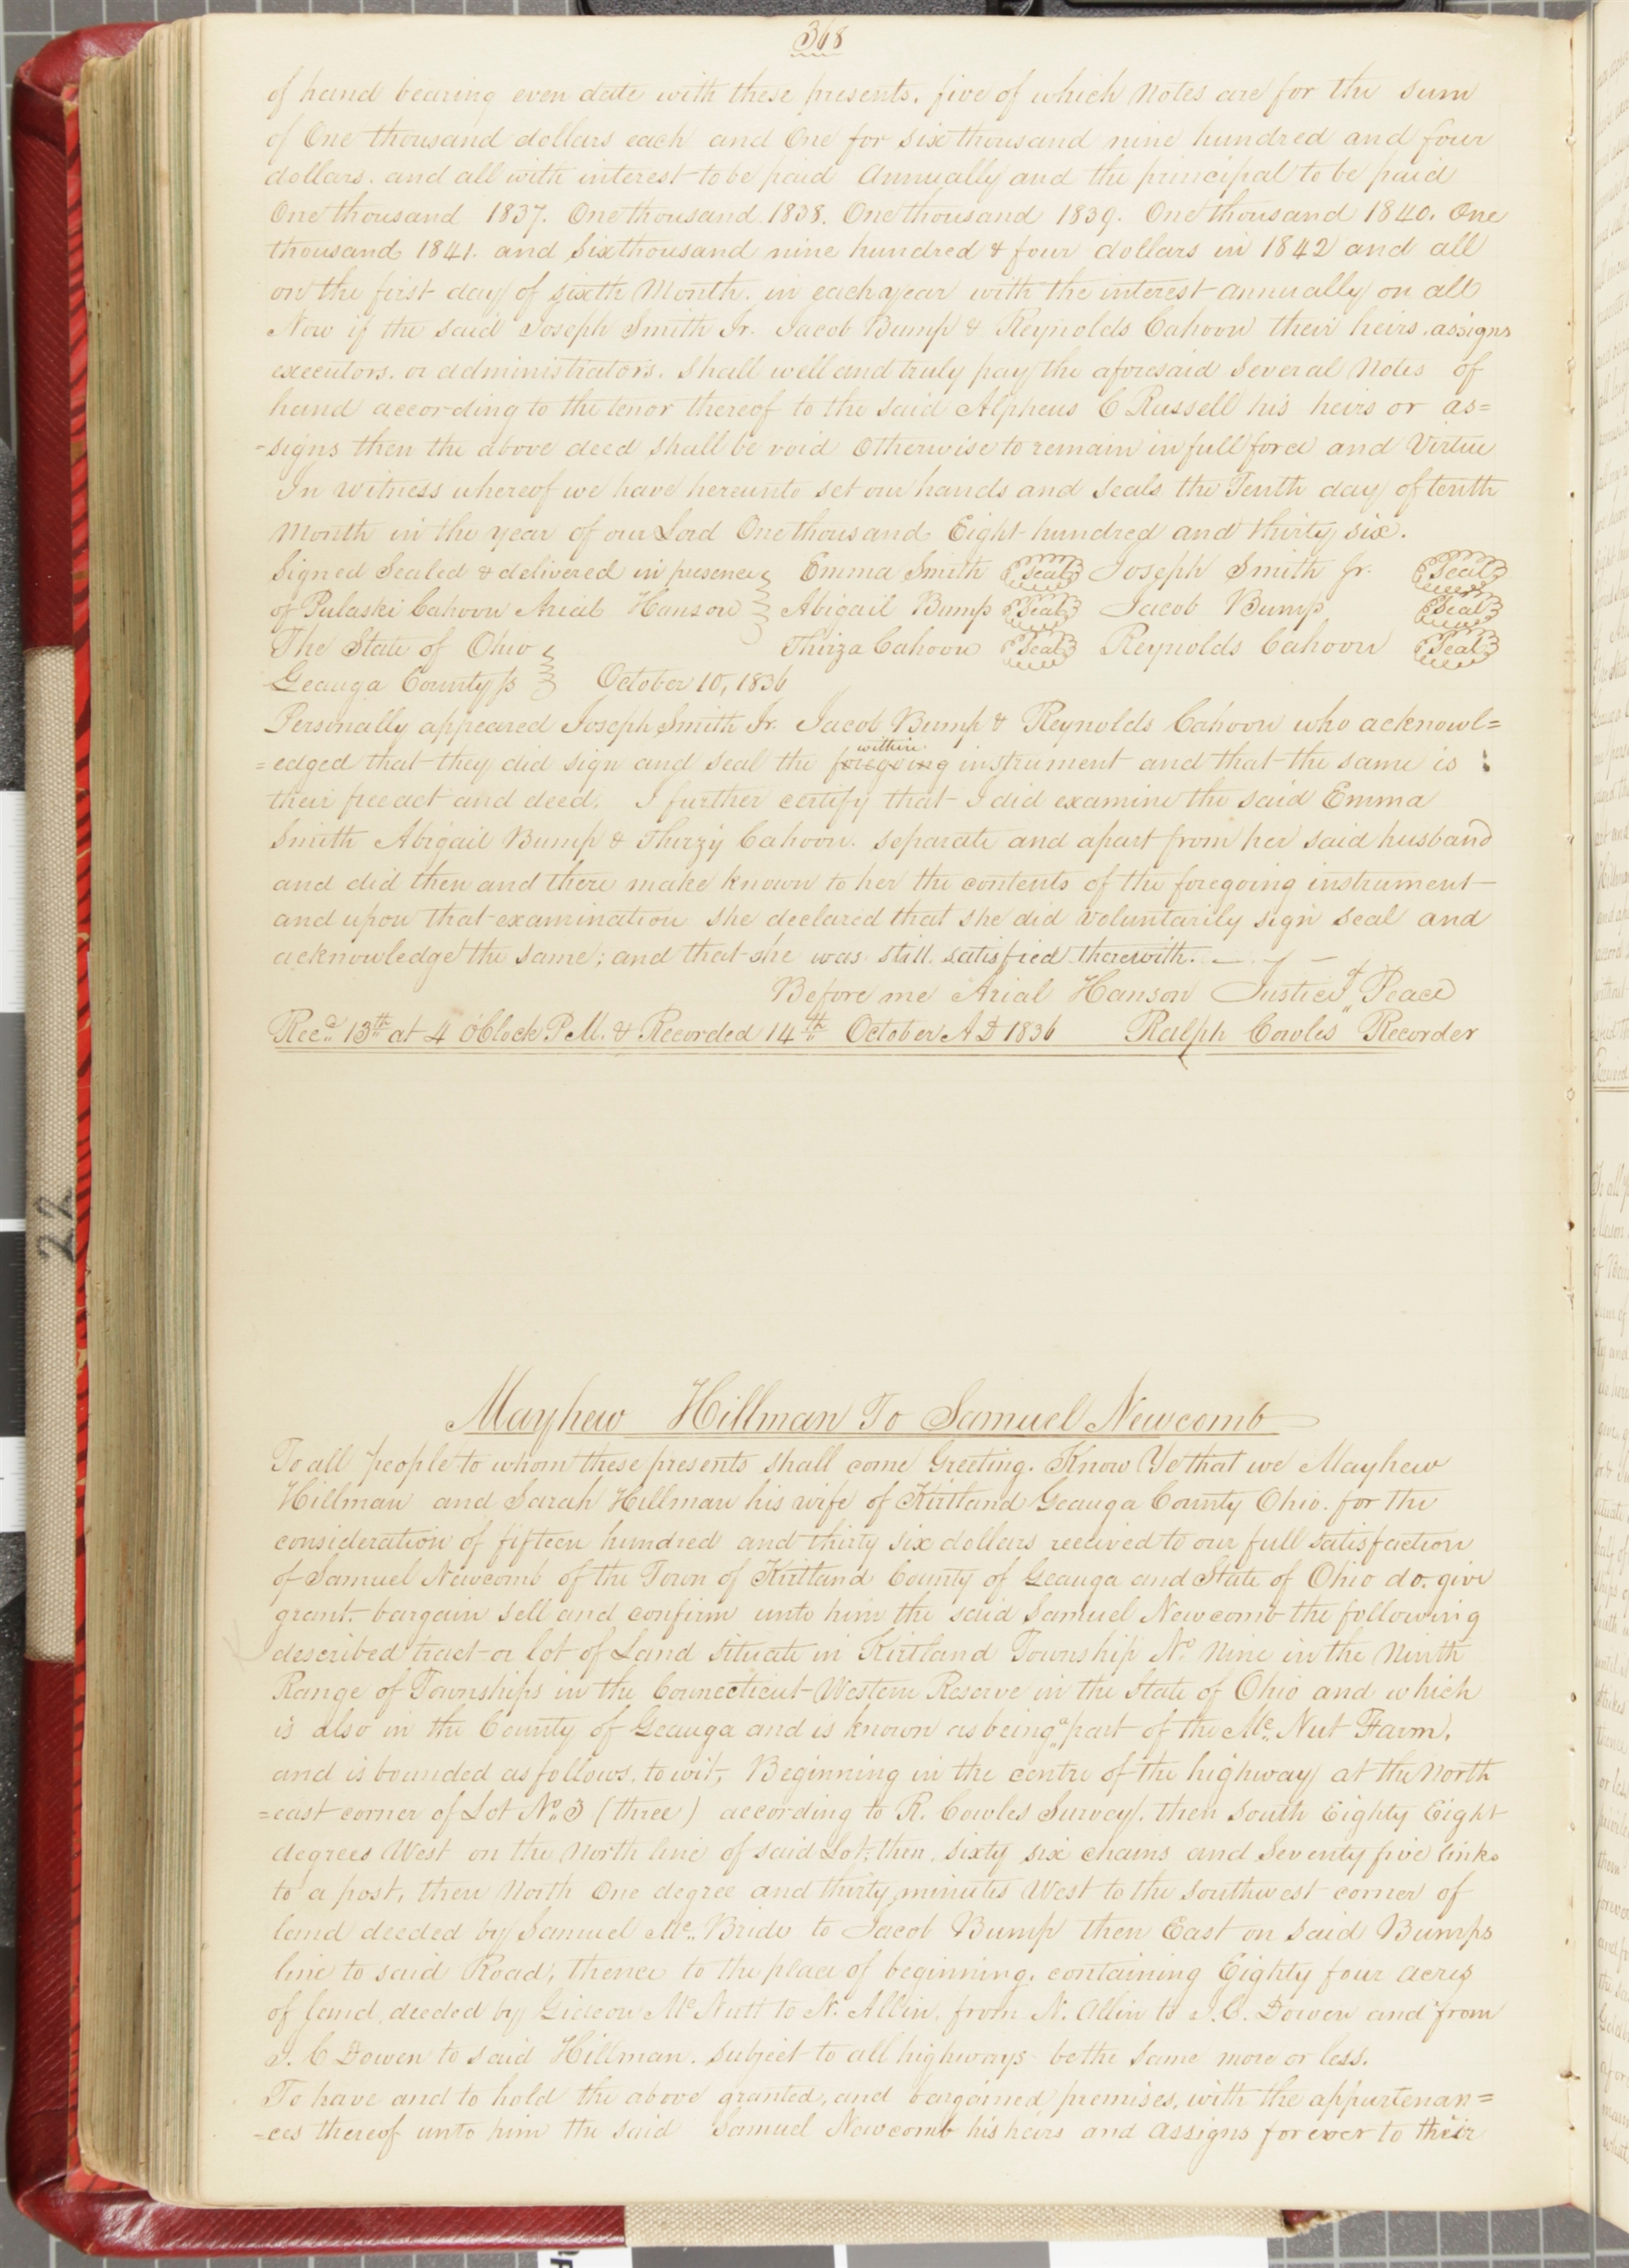 368
of hand bearing even date with these presents. five of which Notes are for the sum
of One thousand dollars each and One for six thousand nine hundred and four
dollars. and all with interest to be paid Annually and the principal to be paid
One thousand 1837. One thousand 1838. One thousand 1839. One thousand 1840. One
thousand 1841. and Six thousand nine hundred & four dollars in 1842 and all
on the first day of sixth Month. in each year with the interest annually on all
Now if the said Joseph Smith Jr. Jacob Bump & Reynolds Cahoon their heirs. assigns
executors. or administrators. shall well and truly pay the aforesaid Several Notes of
hand according to the tenor thereof to the said Alpheus C Russell his heirs or as=
-signs then the above deed shall be void Otherwise to remain in full force and Virtue
In witness whereof we have hereunto set our hands and seals the Tenth day of tenth
Month in the year of our Lord One thousand Eight hundred and thirty six.
Signed Sealed & delivered in presence Emma Smith Seal Joseph Smith Jr. Seal
of Pulaski Cahoon Arial Hanson Abigail Bump Seal Jacob Bump Seal
The State of Ohio Thirza Cahoon Seal Reynolds Cahoon Seal
Geauga County ss October 10, 1836
Personally appeared Joseph Smith Jr. Jacob Bump & Reynolds Cahoon who acknowl=
within
=edged that they did sign and seal the foregoing instrument and that the same is
their free act and deed. I further certify that I did examine the said Emma
Smith Abigail Bump & Thirzy Cahoon. separate and apart from her said husband
and did then and there make known to her the contents of the foregoing instrument
and upon that examination she declared that she did voluntarily sign seal and
acknowledge the same; and that she was still satisfied therewith.
Before me Arial Hanson Justice of Peace
Recd. 13th at 4 oClock P.M. & Recorded 14th October AD 1836 Ralph Cowles Recorder
Mayhew Hillman To Samuel Newcomb
To all people to whom these presents shall come Greeting. Know Ye that we Mayhew
Hillman and Sarah Hillman his wife of Kirtland Geauga County Ohio. for the
consideration of fifteen hundred and thirty six dollars received to our full satisfaction
of Samuel Newcomb of the Town of Kirtland County of Geauga and State of Ohio do. give
grant. bargain sell and confirm unto him the said Samuel Newcomb the following
described tract or lot of Land situate in Kirtland Township No. Nine in the Ninth
Range of Townships in the Connecticut Western Reserve in the State of Ohio and which
is also in the County of Geauga and is known as being a part of the Mc. Nut Farm.
and is bounded as follows. to wit, Beginning in the centre of the highway at the North
=east corner of Lot No. 3 (three) according to R. Cowles Survey. then South Eighty Eight
degrees West on the North line of said Lot, then. sixty six chains and Seventy five links
to a post, then North One degree and thirty minutes West to the southwest corner of
land deeded by Samuel Mc. Bride to Jacob Bump then East on said Bumps
line to said Road, thence to the place of beginning. containing Eighty four acres
of land, deeded by Gideon Mc Nutt to N. Allin. from N. Allin to J. C. Dowen and from
J. C Dowen to said Hillman. subject to all highways be the same more or less.
To have and to hold the above granted, and bargained premises, with the appurtenan=
-ces thereof unto him the said Samuel Newcomb his heirs and assigns forever to their
22